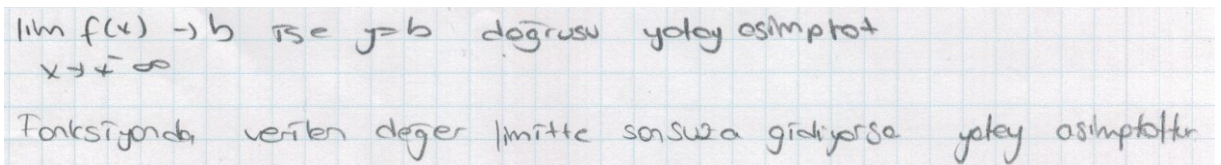 lim f(x) → b ise y=b doğrusu yatay asimptot
x→ ±∞
Fonksiyonda verilen değer limitte sonsuza gidiyorsa yatay asimptottur